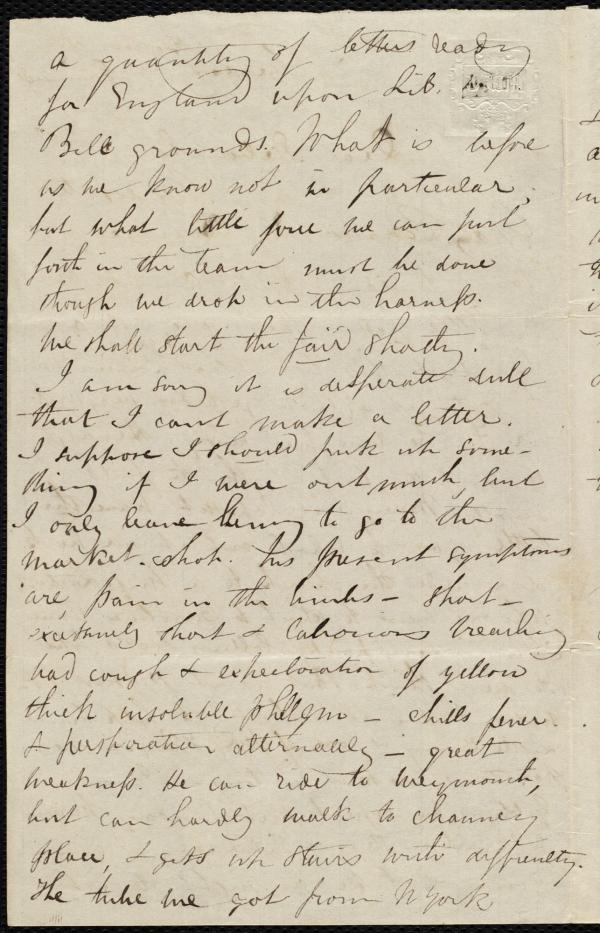 a quantity of letters ready
for England upon Lib.
Bell grounds. What is before
us we know not in particular,
but what little force we can put
forth in the team must be done
though we drop in the harness.
We shall start the fair shortly.
I am sorry it is desperate dull
that I can't make a letter.
I suppose I should pick up some-
thing if I were out much, but
I only leave Henry to go to the
market-shop. His present symptoms
are, pain in the limbs - short -
extremely short & laborious breathing
bad cough & expectoration of yellow
thick insoluble phlegm - chills fever
& perspiration alternately - great
weakness. He can ride to Weymouth,
but can hardly walk to Chauncy
place, & gets up stairs with difficulty.
The tube we got from N York